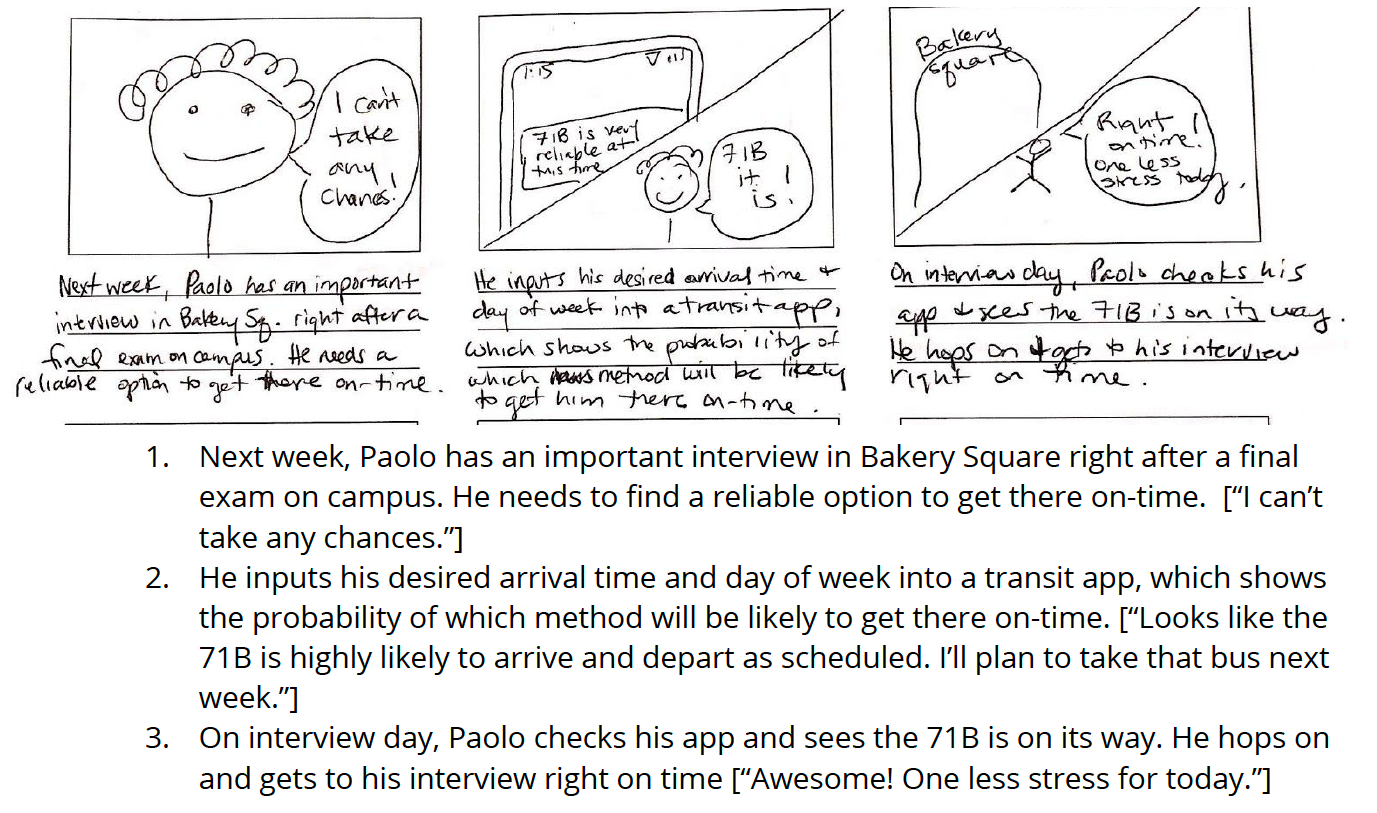 I can't
take
any
Chances!
Next week, Paolo has an important
interview in Bakery Sq. right after a
final exam on campus. He needs a
reliable option to get there on-time.
1:15
71B is very
reliable at
this time
71B
it
is!
He inputs his desired arrival time +
day of week into a transit app,
which shows the probability of
which method will be likely
to get him there on-time.
Bakery
square
Right
on time!
one less
stress today.
On interview day, Paolo checks his
app + sees the 71B is on its way.
He hops on + gets to his interview
right on time.
1. Next week, Paolo has an important interview in Bakery Square right after a final
exam on campus. He needs to find a reliable option to get there on-time. [“I can’t
take any chances.”]
2. He inputs his desired arrival time and day of week into a transit app, which shows
the probability of which method will be likely to get there on-time. [“Looks like the
71B is highly likely to arrive and depart as scheduled. I’ll plan to take that bus next
week.”]
3. On interview day, Paolo checks his app and sees the 71B is on its way. He hops on
and gets to his interview right on time [“Awesome! One less stress for today.”]